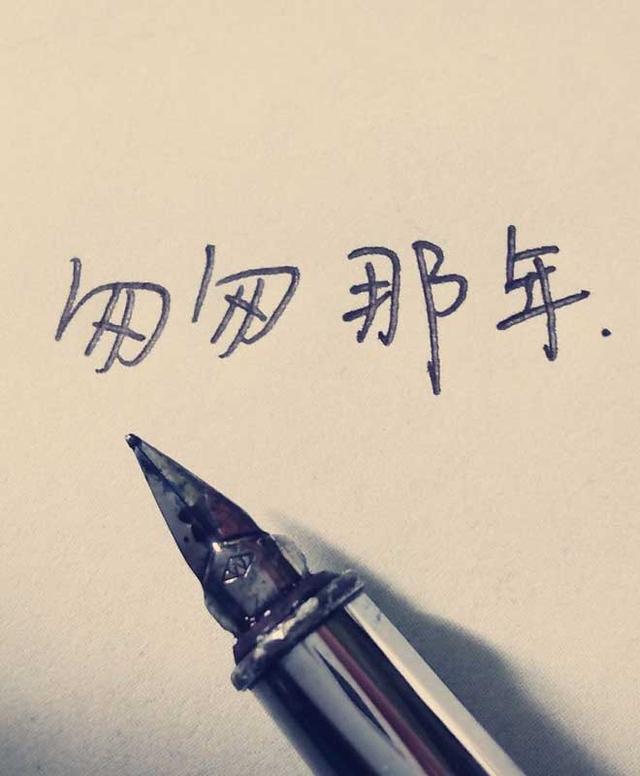 匆匆那年.